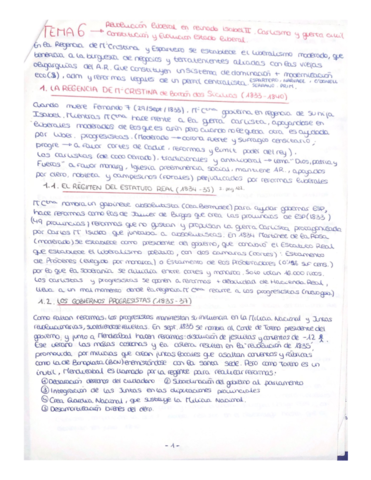 TEMA 6 → Revolución liberal en reinado Isabel II. Carlismo y guerra civil
Construcción y Evolución Estado liberal.
En la Regencia de Mª Cristina y Espartero se establece el liberalismo moderado, que
beneficia a la burguesía de negocios y terratenientes aliados con las viejas
oligarquías del A.R. Que construyen un sistema de dominación + modernización
eco($), adm y reformas legales de un Estado centralista
1. LA REGENCIA DE Mª CRISTINA DE Borbón dos Sicilias (1833-1840)
Cuando muere Fernando 7 (29 Sept 1833), Mª Cristina gobierna en Regencia de su hija
Isabel, Mientras hace frente a la guerra carlista, apoyándose en
liberales moderados
por lib. progresistas. (Moderado → corona fuerte y sufragio censitario,
progre → a favor Cortes de Cádiz, reformas y limit poder del rey).
Los carlistas (de don Carlos), tradicionales y antiliberal → lema "Dios, patria y
Fueros", a favor monarq, Iglesia, preeminencia social, mantener AR, apoyados
por clero, nobleza y campesinos (norte) perjudicados por reformas liberales
1.1. EL RÉGIMEN DEL ESTATUTO REAL (1834-35)
Mª C nombra un gobierno absolutista (Cea Bermúdez) para
hace reformas como las de Javier de Burgos que crea las provincias de ESP (1833)
(49 provincias) reformas que no gustan y propulsan la guerra Carlista, protagonizada
por Carlos Mª Isidro que junta a absolutistas. En 1834 Martínez de la Rosa
(moderado) se establece como presidente del gobierno, que redactó el Estatuto Real
que establece el liberalismo político, con dos cámaras (Cortes): Estamento
de Próceres (elegido por monarca) o Estamento de los Procuradores
por lo que la soberanía se divide entre cortes y monarca. Solo votan 16.000 ricos
Los carlistas y progresistas se oponen a reformas + desastre de Hacienda Real,
lleva a un mal momento donde la regencia de Mª C recurre a los progresistas
1.2. LOS GOBIERNOS PROGRESISTAS (1835-37)
Como faltan reformas, los progresistas manifiestan su influencia en la Milicia Nacional y Juntas
revolucionarias, sublevándose. En sept. 1835 se nombra al Conde de Toreno presidente del
gobierno, y junto a Mendizábal hacen reformas: disolución de jesuitas y conventos de -12
Ese verano las malas cosechas y la cólera resultan en la "revolución de 1835"
promovida por milicias que crean juntas locales que asaltan conventos y fábricas
como la de Bonaplata (Bcn)
inútil, Mendizábal es llamado por la regente para realizar reformas:
① Declaración derechos del ciudadano ② Subordinación del gobierno al parlamento
③ Integración de las juntas en las diputaciones provinciales
④ Crea Guardia Nacional, que sustituye la Milicia Nacional.
⑤ Desamortización bienes del clero.
- 1 -